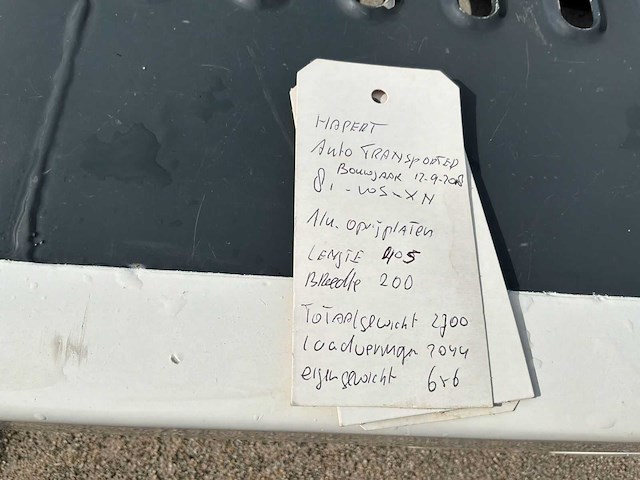 HAPERT
Auto TRANSPORTER
Bouwjaar 12-9-2008
81-WS-XN
Alu. oprijplaten
LENGTE 405
Breedte 200
TOTAAlgewicht 2700
laadvermogen 2044
eigengewicht 656